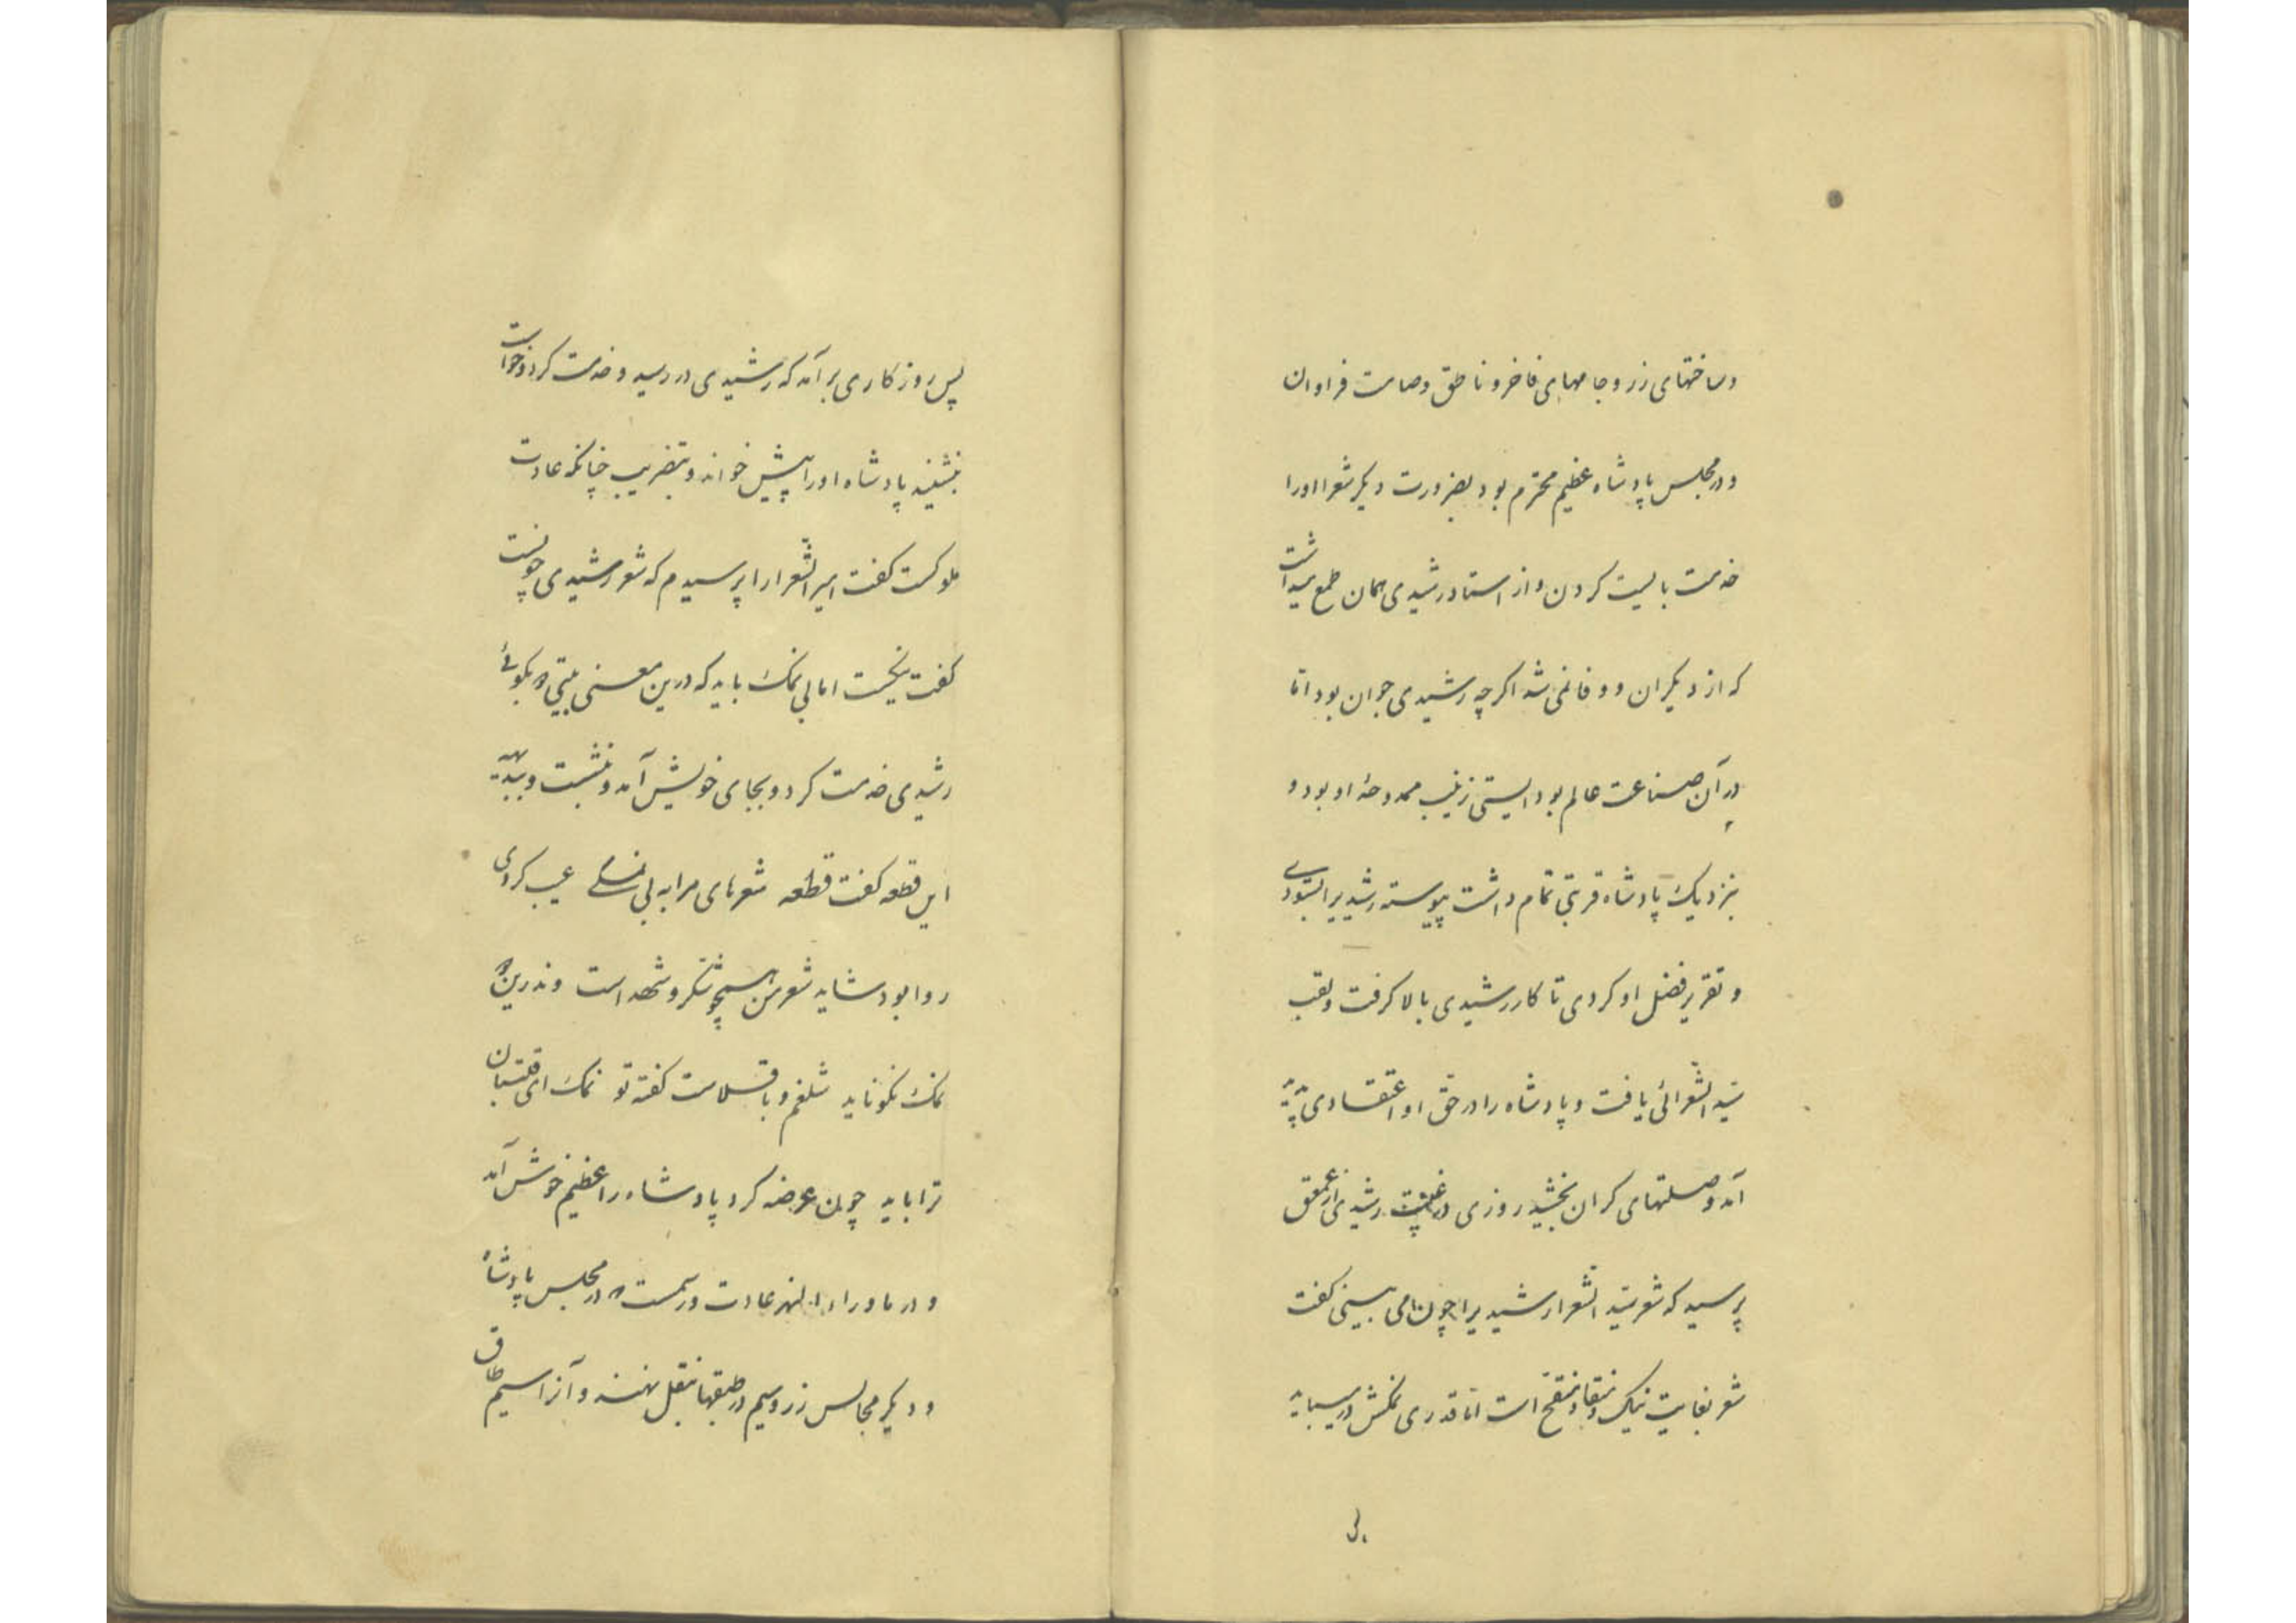 و ساختهای زر و جامهای فاخر و ناطق و صامت فراوان
و در مجلس پادشاه عظیم محترم بود بضرورت دیکر شعرا او را
خدمت بایست کردن و از استاد رشیدی همان طمع میداشت
که از دیکران و وفا نمی شد اکر چه رشیدی جوان بود اما
در آن صناعت عالم بود الستی زینب ممدوحهٔ او بود و
بنزدیک پادشاه قربتی تمام داشت پیوسته رشیدیرا ستودی
و تقریر فضل او کردی تا کار رشیدی بالا کرفت و لقب
سید الشعرائی یافت و پادشاه را در حق او اعتقادی پدید
آمد و صلتهای کران بخشید روزی در غیبت رشیدی از عمعق
پرسید که شعر سید الشعرا رشیدیرا چون می بینی کفت
شعر بغایت نیک و منقا و منقح است اما قدری نمکش در میباید
پس روزکاری بر آمد که رشیدی در رسید و خدمت کرد و خواست
بنشیند پادشاه او را پیش خواند و بتضریب چنانکه عادت
ملوکست کفت امیر الشعرا را پرسیدم که شعر رشیدی چونست
کفت نیکست اما بی نمک باید که درین معنی بیتی دو بکوئی
رشیدی خدمت کرد و بجای خویش آمد و بنشست و ببدیهه
این قطعه کفت قطعه شعرهای مرا به بی نمکی عیب کردی
روا بود شاید شعر من همچو شکر و شهد است وندرین دو
نمک نکو ناید شلغم و باقلاست کفته تو نمک ای قلتبان
ترا باید چون عرضه کرد پادشاه را عظیم خوش آمد
و در ماوراء النهر عادت و رسمست که در مجلس پادشاه
و دیکر مجالس زر و سیم در طبقها بنقل بنهند و آنرا سیم طاق